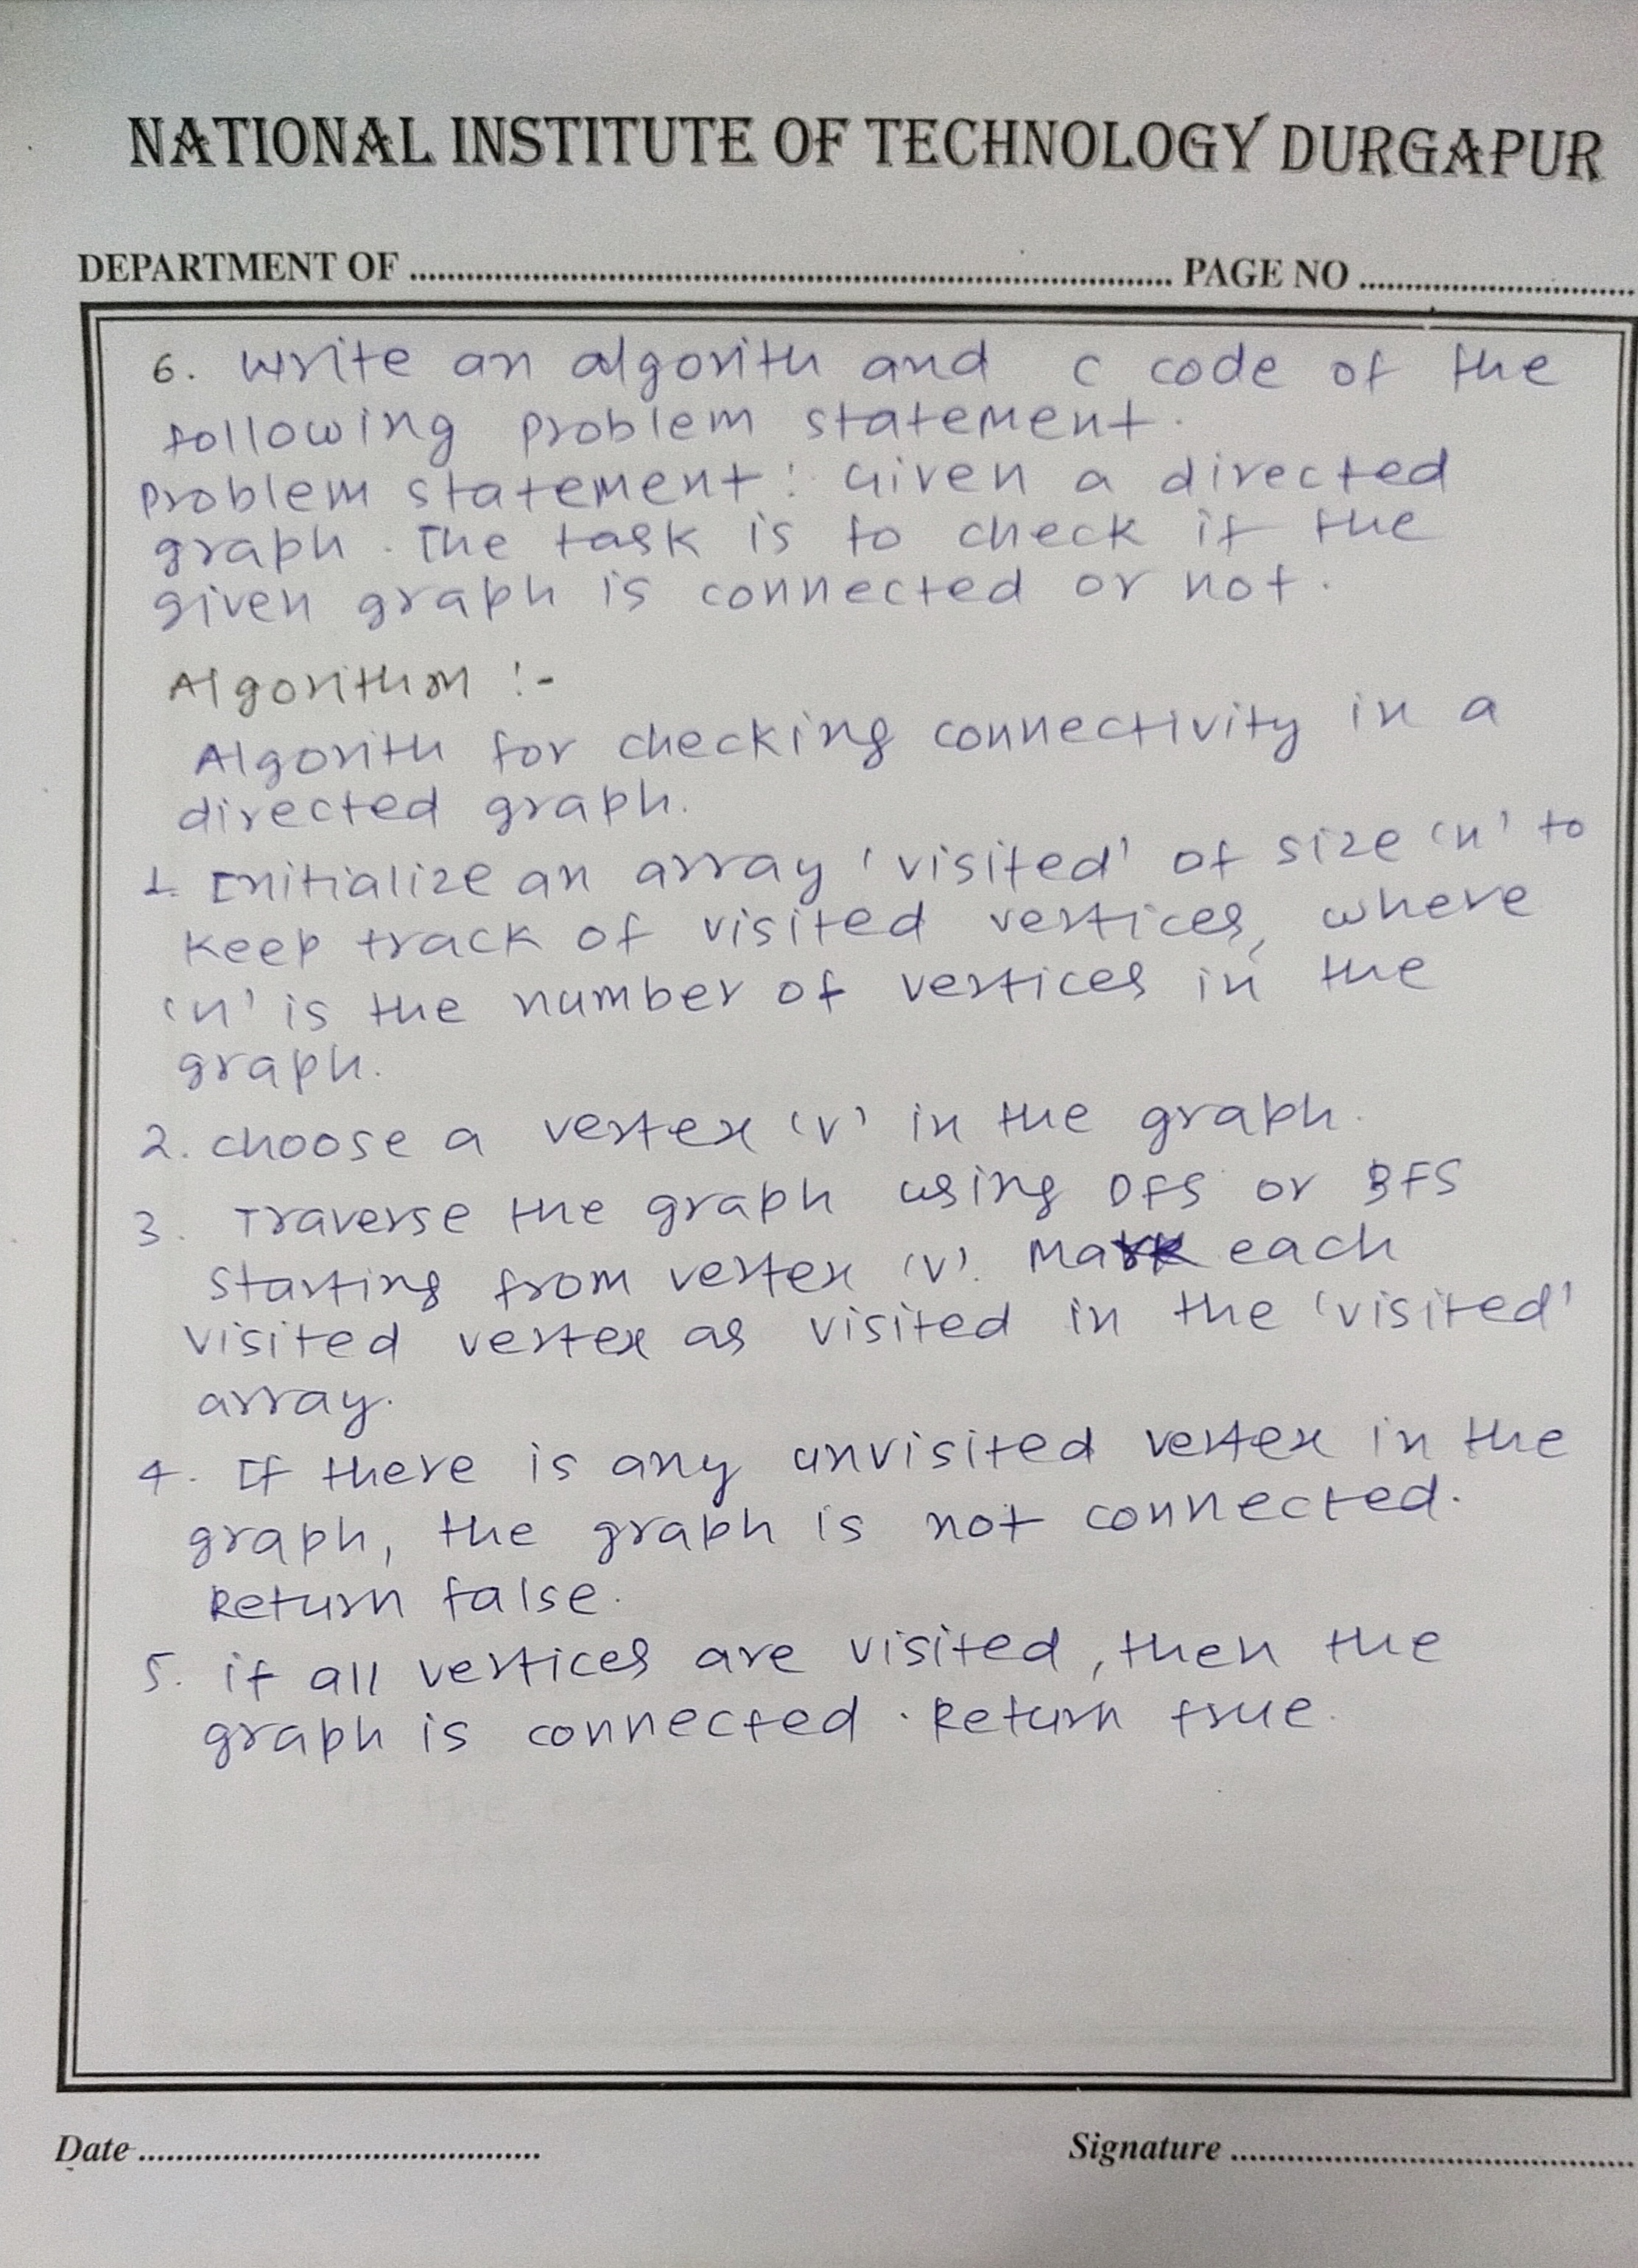 NATIONAL INSTITUTE OF TECHNOLOGY DURGAPUR
DEPARTMENT OF ........................ PAGE NO ............
6. write an algorith and c code of the
following problem statement.
Problem statement: Given a directed
graph. The task is to check if the
given graph is connected or not.
Algorithm :-
Algorith for checking connectivity in a
directed graph.
1. Initialize an array 'visited' of size 'n' to
keep track of visited vertices, where
'n' is the number of vertices in the
graph.
2. choose a vertex 'v' in the graph.
3. Traverse the graph using DFS or BFS
starting from vertex 'v'. Mark each
visited vertex as visited in the 'visited'
array.
4. If there is any unvisited vertex in the
graph, the graph is not connected.
Return false.
5. if all vertices are visited, then the
graph is connected. Return true.
Date ........................ Signature ........................